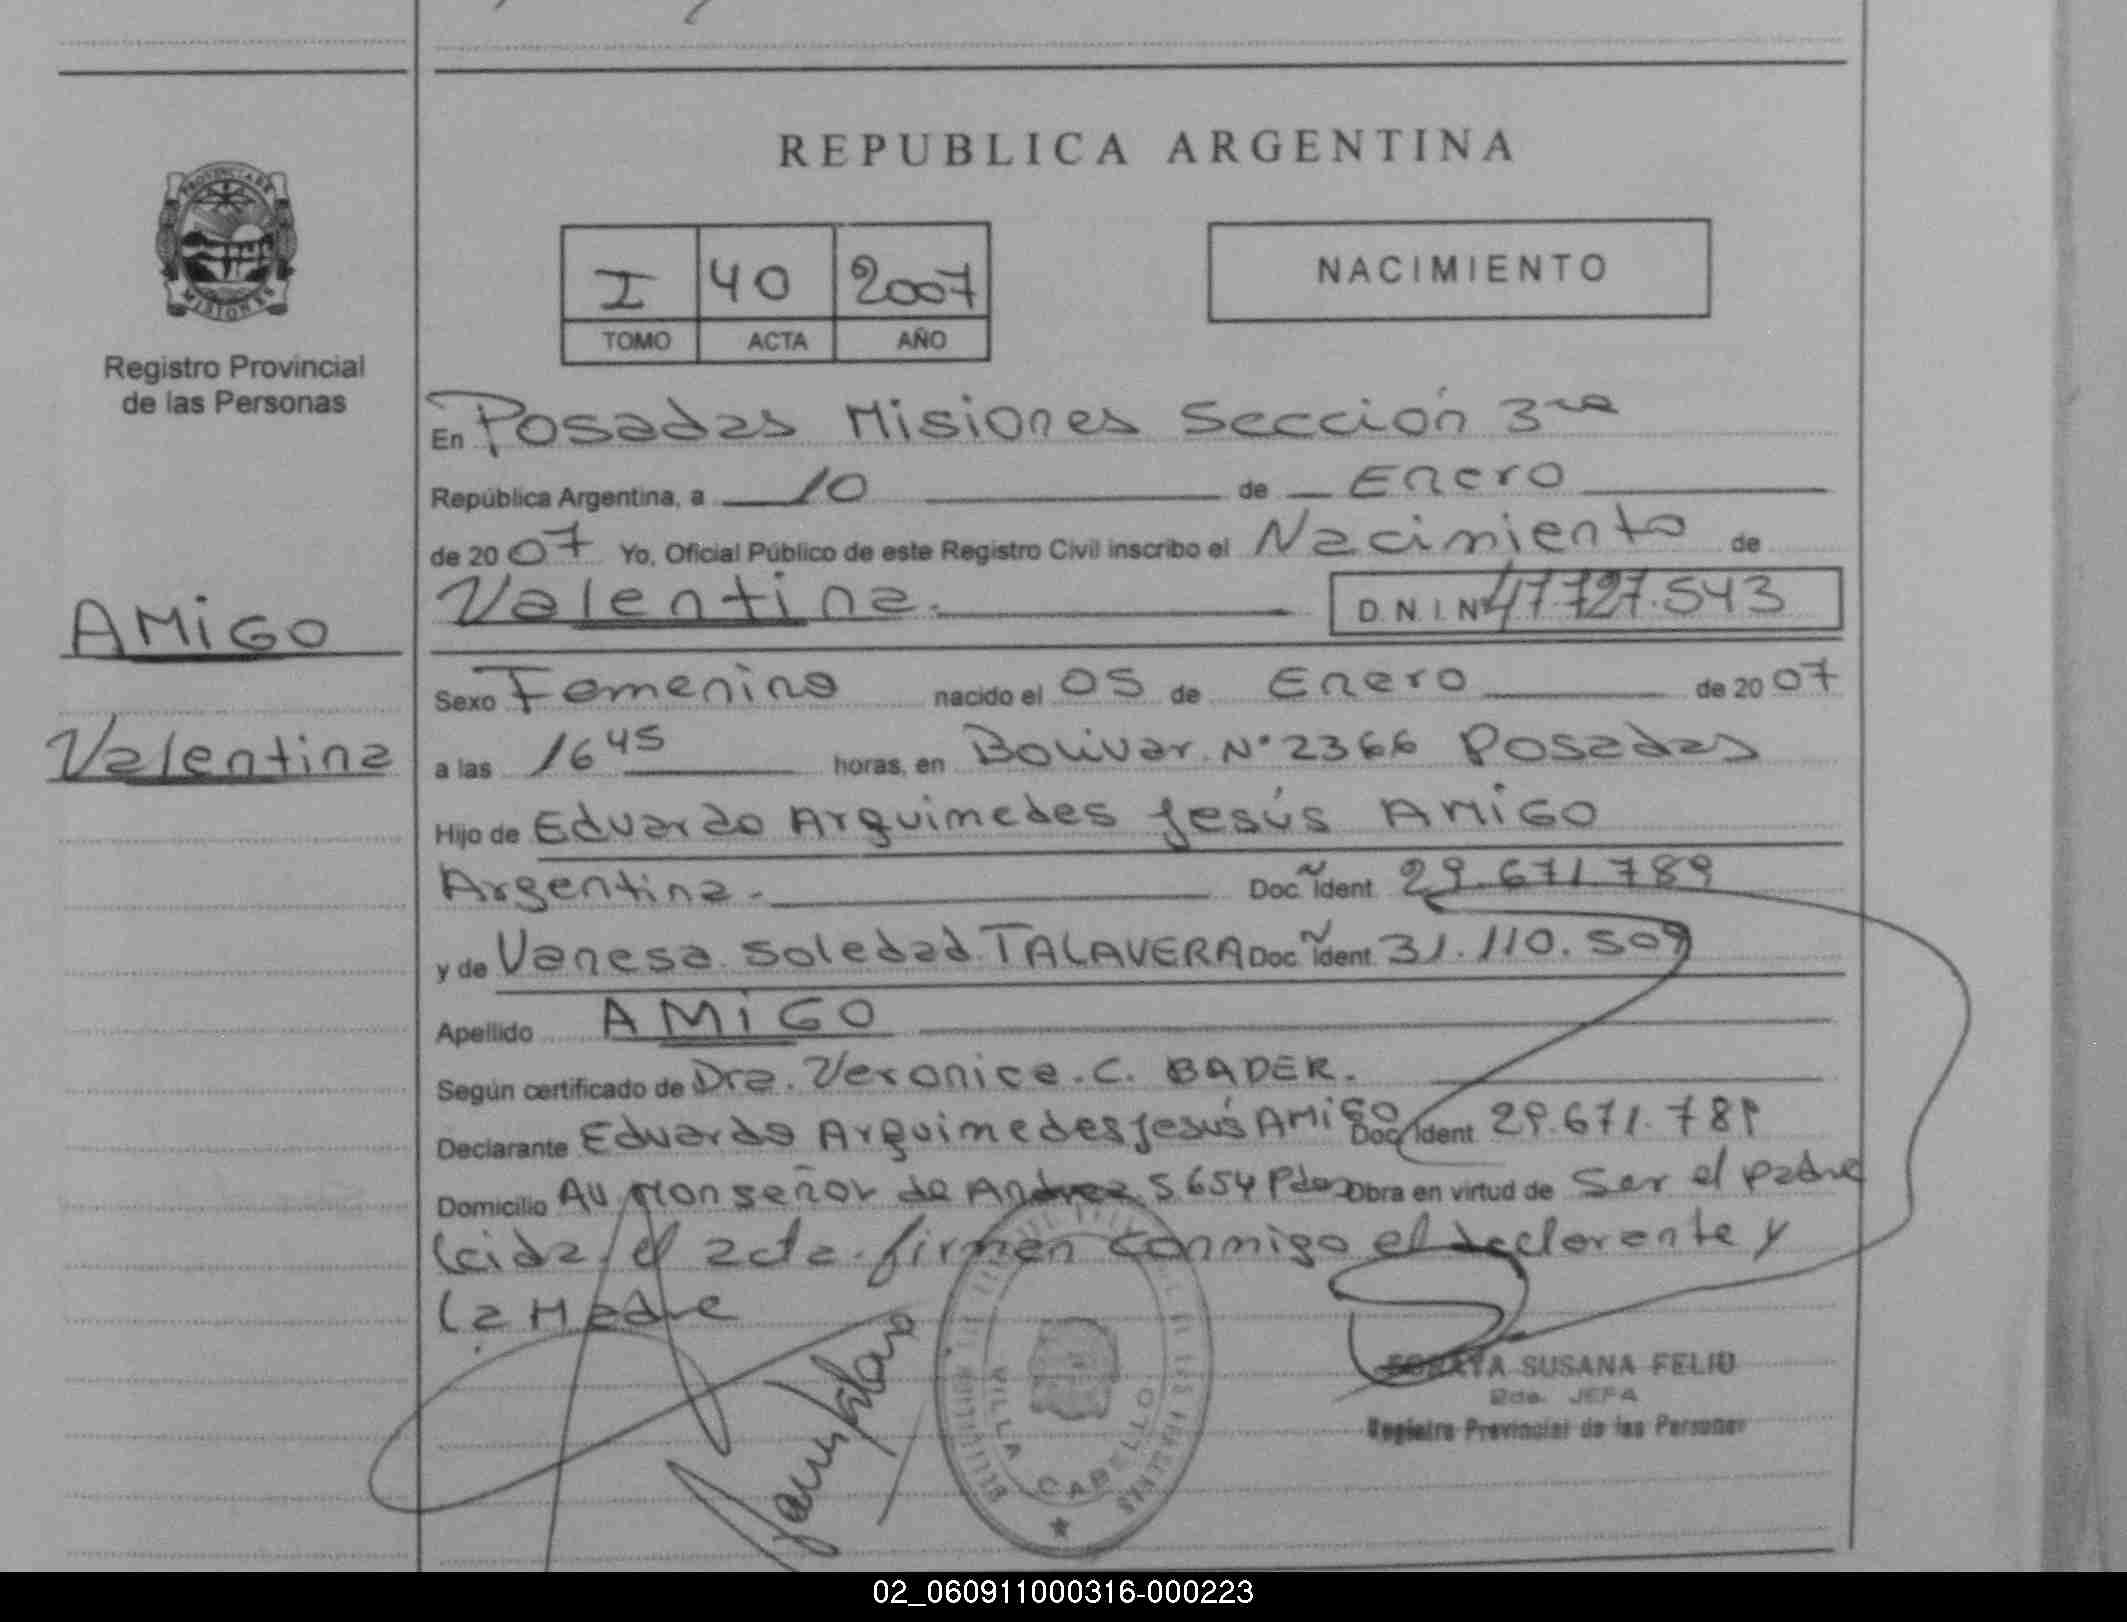 REPUBLICA ARGENTINA
PROVINCIA DE
MISIONES
Registro Provincial
de las Personas
I 40 2007
TOMO ACTA AÑO
NACIMIENTO
En Posadas Misiones Sección 3ra
República Argentina, a 10 de Enero
de 2007 Yo, Oficial Público de este Registro Civil inscribo el Nacimiento de
Valentina.
D.N.I.Nº 47.727.543
AMiGO
Valentina
Sexo Femenino nacido el 05 de Enero de 2007
a las 16 45 horas, en Bolivar Nº 2366 Posadas
Hijo de Eduardo Arquimedes Jesús AMiGO
Argentina.- Doc. Ident. 29.671.789
y de Vanesa Soledad TALAVERA Doc. Ident. 31.110.509
Apellido AMiGO
Según certificado de Dra. Veronica C. BADER.
Declarante Eduardo Arquimedes Jesús AMiGO Doc. Ident 29.671.789
Domicilio Av Monseñor de Andrea 5654 Pdas Obra en virtud de Ser el padre
leida el acta firman conmigo el declarante y
la Madre
VILLA CABELLO
SORAYA SUSANA FELIU
2da. JEFA
Registro Provincial de las Personas
02_060911000316-000223